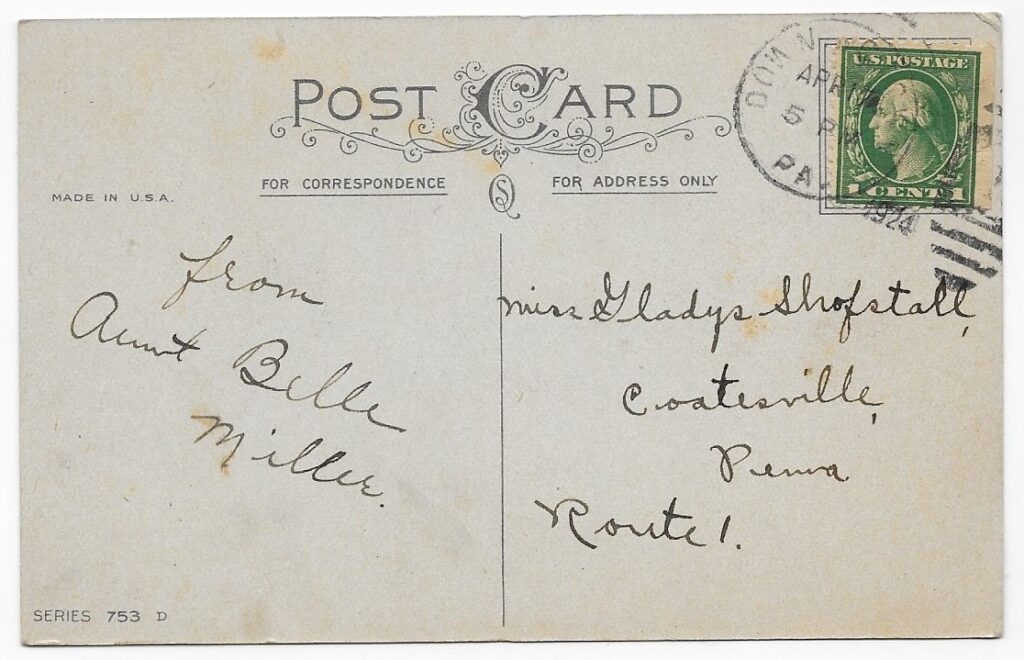 POST CARD
FOR CORRESPONDENCE
FOR ADDRESS ONLY
MADE IN U.S.A.
U.S. POSTAGE
1 CENT 1
APR
5 PM
PA.
1924
from
Aunt Belle
Miller.
Miss Gladys Shofstall,
Coatesville,
Penna
Route 1.
SERIES 753 D